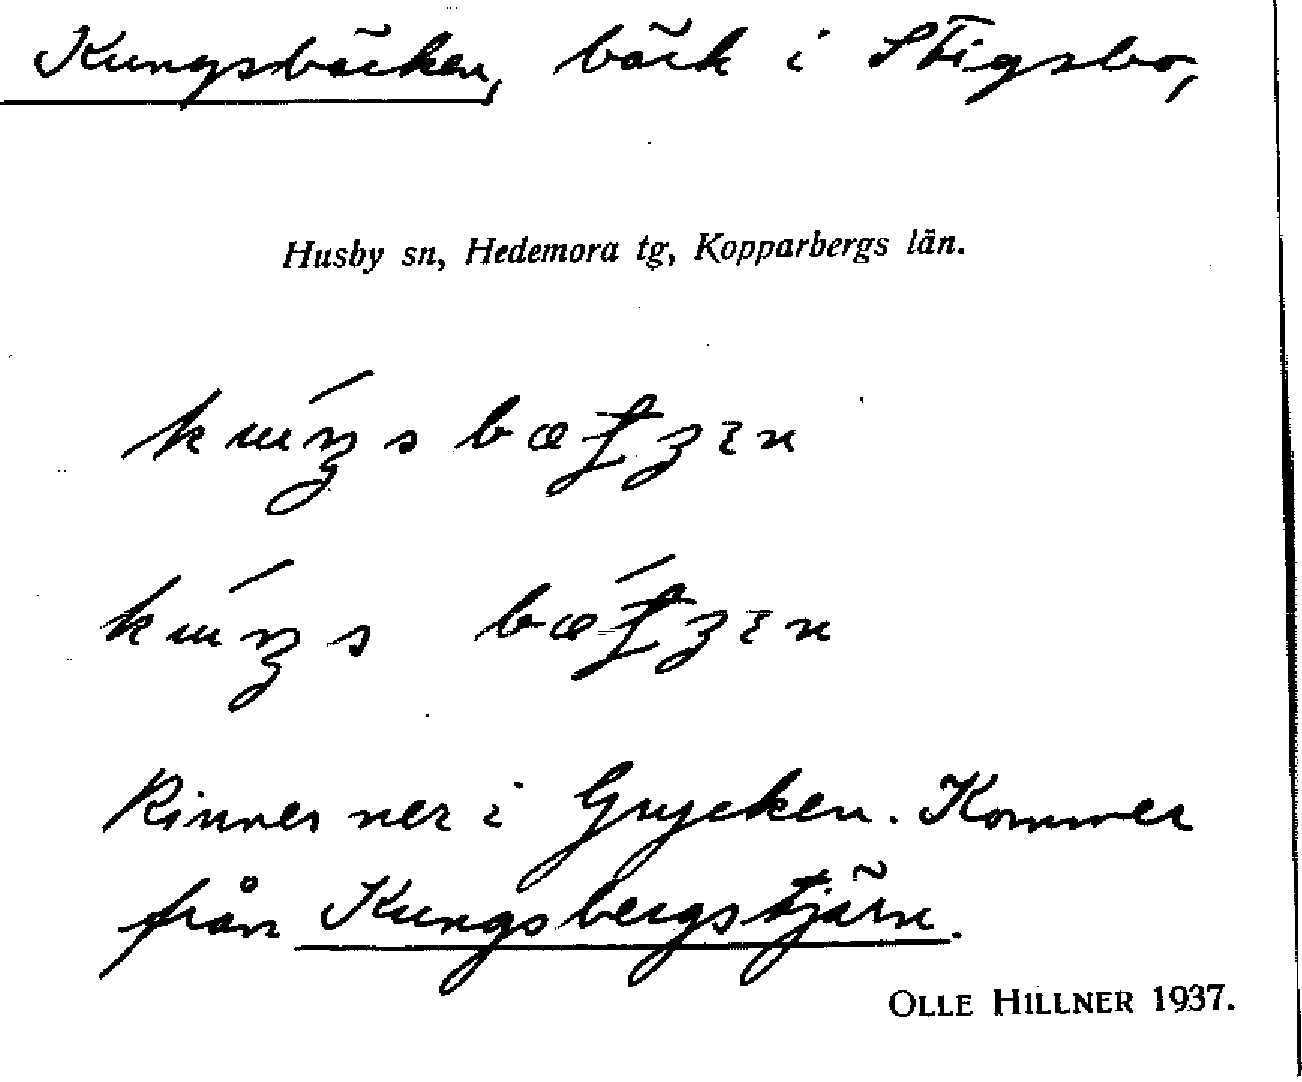 Kungsbäcken, bäck i Stigsbo,
Husby sn, Hedemora tg, Kopparbergs län.
Rinner ner i Grycken. Kommer
från Kungsbergstjärn.
OLLE HILLNER 1937.